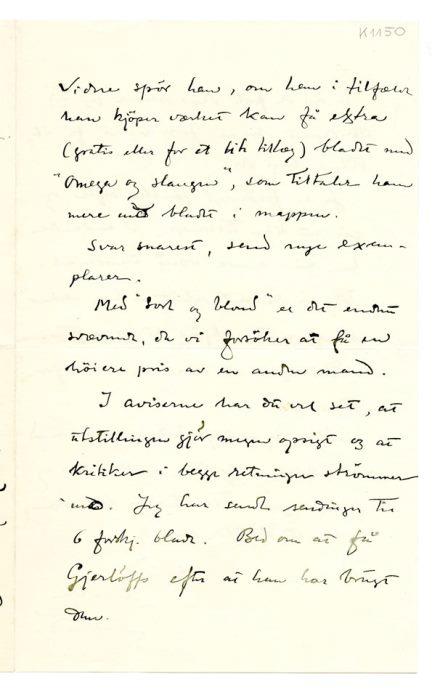 K1150
Vidre spör han, om han i tilfælde
han kjöper værket kan få extra
(gratis eller for et lite tillæg) bladet med
"Omega og slangen", som tiltaler ham
mere end bladet i mappen.
Svar snarest, send nye exem-
plarer.
Med "Sort og blond" er det endnu
svævende, da vi forsöker at få en
höiere pris av en anden mand.
I aviserne har du vel set, at
utstillingen gjör megen opsigt og at
kritiker i begge retninger strömmer
ind. Jeg har sendt sendinger til
6 forskj. blade. Bed om at få
Gjerlöffs efter at han har brugt
dem.